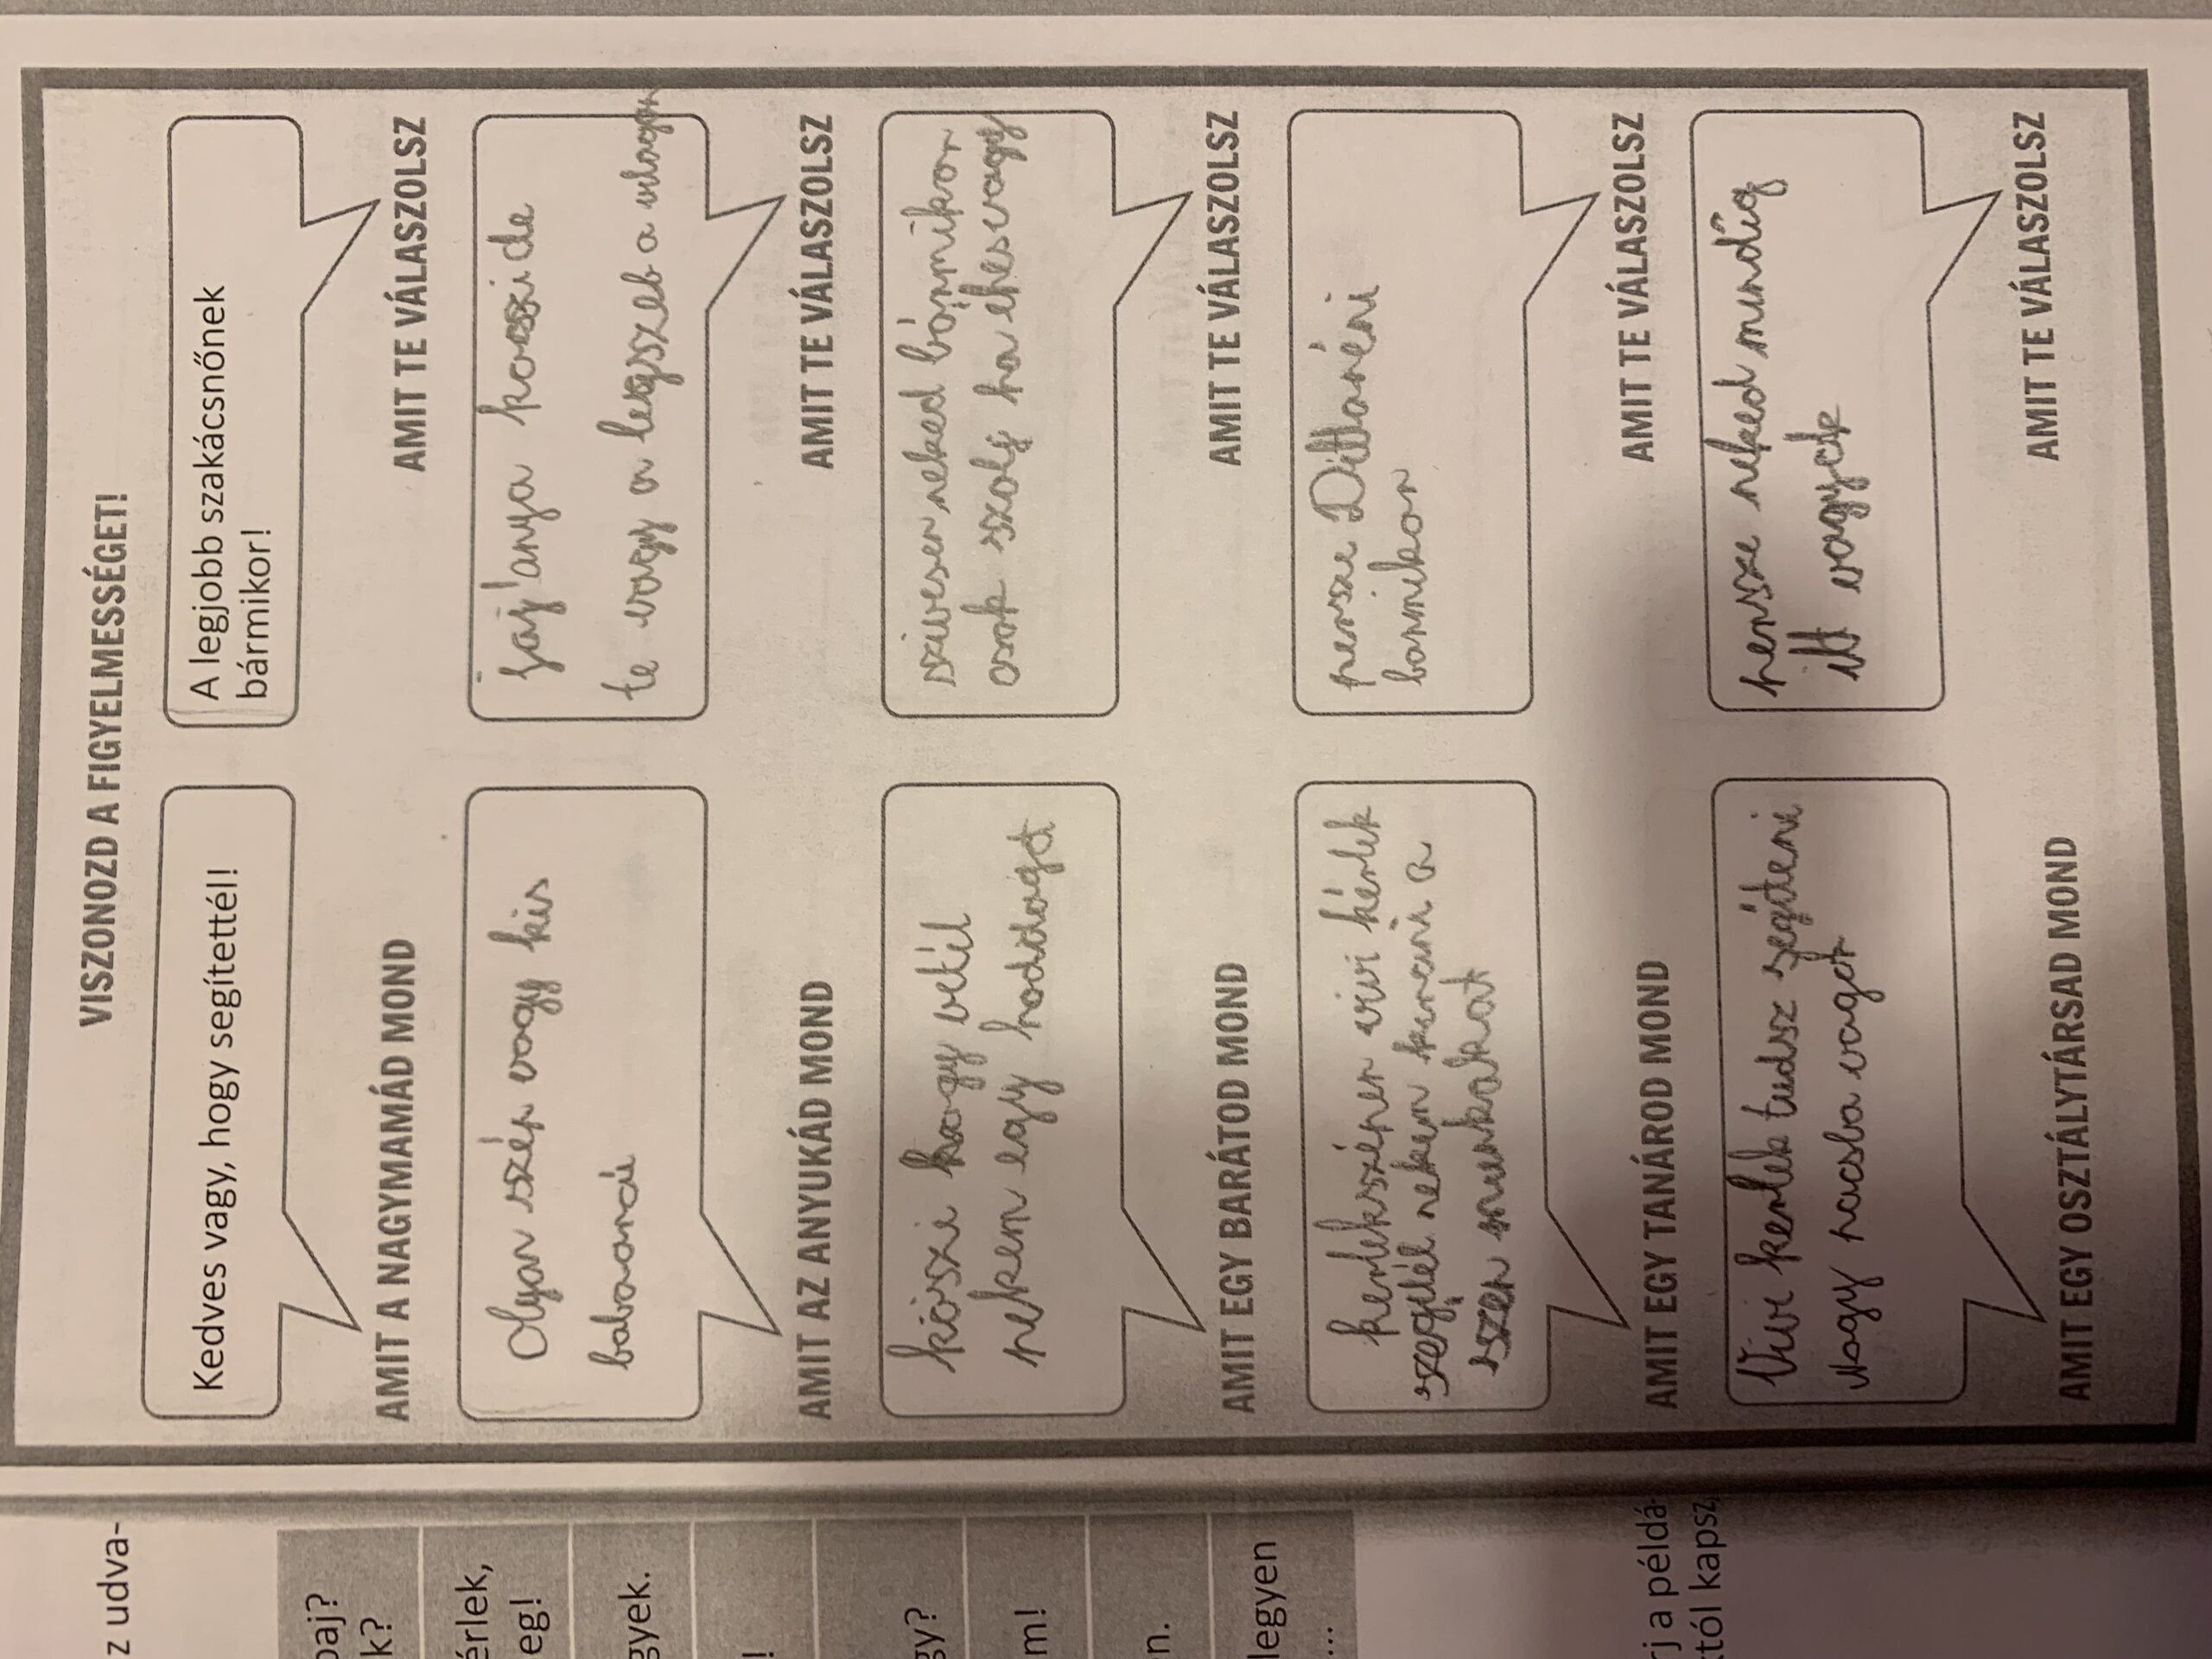 VISZONOZD A FIGYELMESSÉGET!
Kedves vagy, hogy segítettél!
AMIT A NAGYMAMÁD MOND
A legjobb szakácsnőnek
bármikor!
AMIT TE VÁLASZOLSZ
Olyan szép vagy kis
AMIT AZ ANYUKÁD MOND
jaj anya koszi de
te vagy a legszeb a világon
AMIT TE VÁLASZOLSZ
köszi hogy vetél
nekem egy hotdogot
AMIT EGY BARÁTOD MOND
szivesen neked bármikor
csak szolj ha éhes vagy
AMIT TE VÁLASZOLSZ
kerlekszépen vivi kérlek
nekem a
szen munkakat
AMIT EGY TANÁROD MOND
persze Dittanéni
barmikor
AMIT TE VÁLASZOLSZ
Vivi kerlek tudsz segíteni
nagy vagok
AMIT EGY OSZTÁLYTÁRSAD MOND
persze neked mindíg
itt vagyok
AMIT TE VÁLASZOLSZ
z udva-
paj?
k?
érlek,
eg!
gyek.
!
gy?
m!
n.
legyen
...
rj a példá-
tól kapsz,